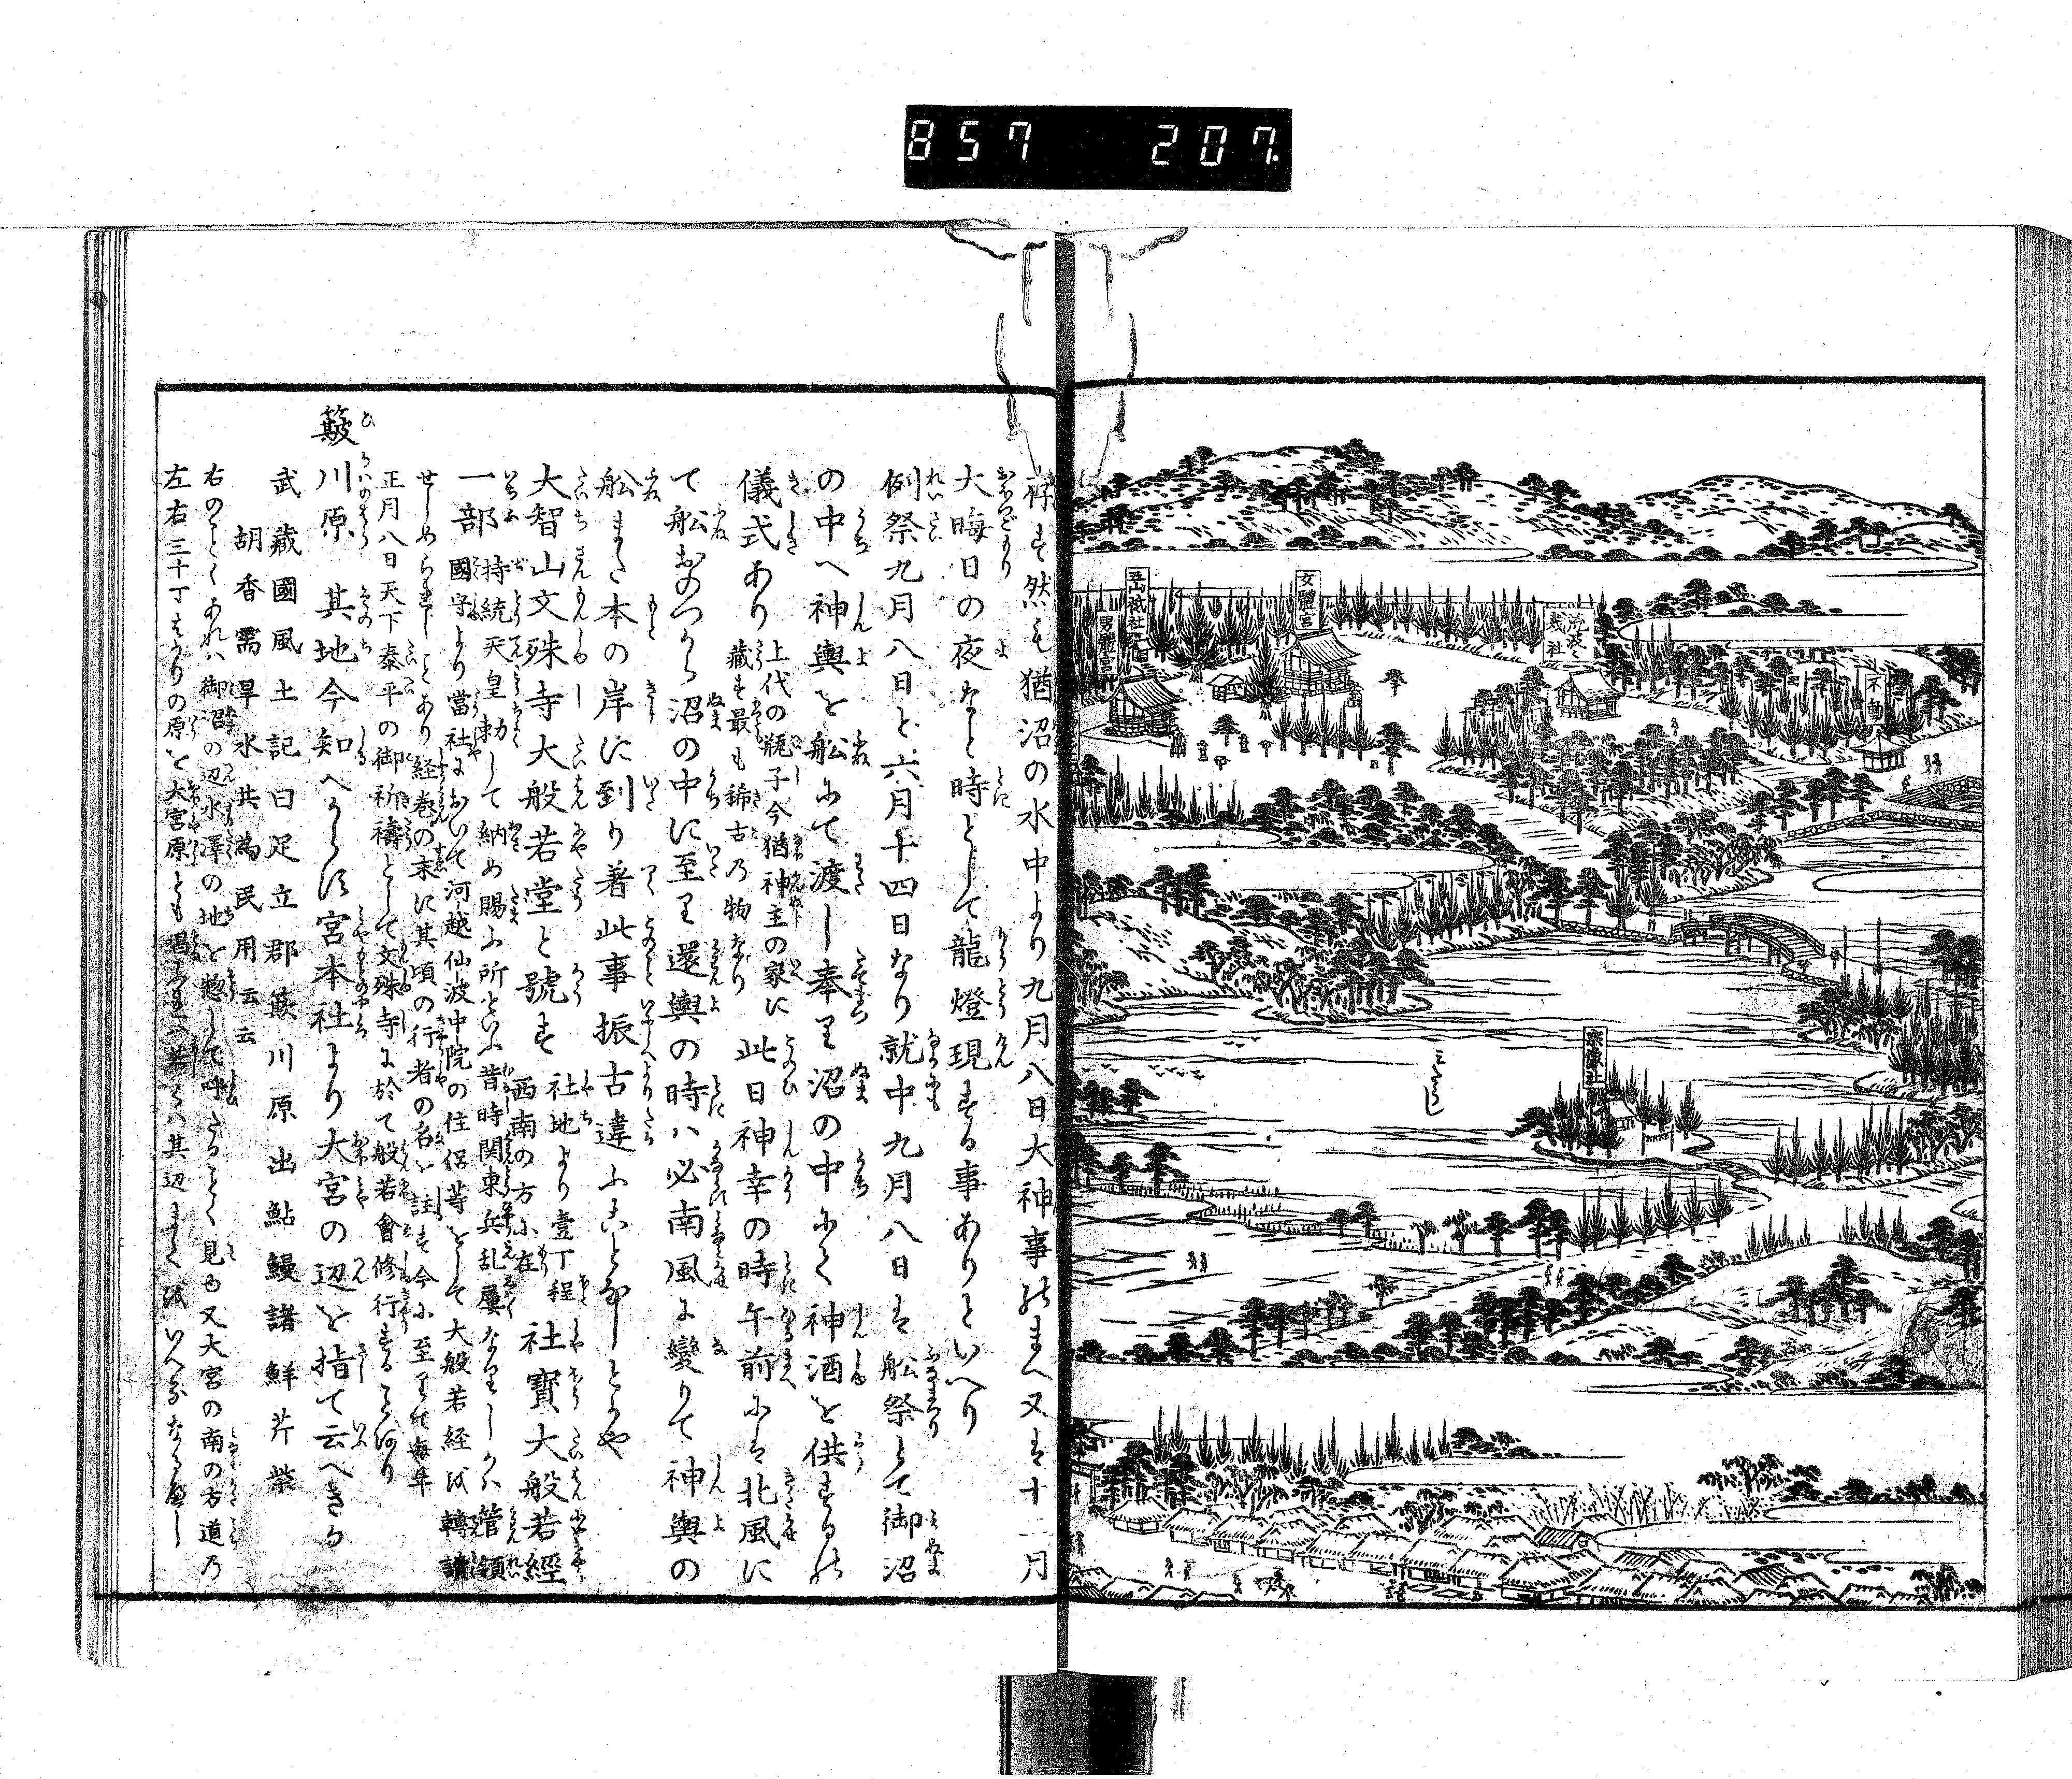 857 207.
五山祇社
男體宮
女體宮
不動
宗像社
みたらし
然も猶沼の水中より九月八日大神事のまへ又は十一月
大晦日の夜など時として龍燈現する事ありといへり
例祭九月八日と六月十四日なり就中九月八日は舩祭とて御沼
の中へ神輿を舩にて渡し奉り沼の中にて神酒を供するの
儀式あり
上代の瓶子今猶神主の家に
蔵す最も稀古の物なり
此日神幸の時午前には北風に
て舩おのつから沼の中に至り還輿の時ハ必南風に変りて神輿の
舩また本の岸に到り著此事振古違ふことなしとかや
大智山文殊寺大般若堂と號す
社地より壹丁程
西南の方に在
社寶大般若經
一部
持統天皇勅して納め賜ふ所といふ昔時関東兵乱屢なりしかハ管領
國守より當社において河越仙波中院の住侶等をして大般若経を轉讀
せしめられしことあり経巻の末に其頃の行者の名を註す今に至りて毎年
正月八日天下泰平の御祈禱として文殊寺に於て般若會修行することあり
簸川原 其地今知へからす宮本社より大宮の辺を指て云へきか
武蔵國風土記曰足立郡簸川原出鮎鰻諸鮮芹紫
胡香需旱水共為民用云云
右のことくあれハ御沼の辺水澤の地を惣して呼たることく見ゆ又大宮の南の方道の
左右三十丁はかりの原を大宮原とも唱ふれハ若くハ其辺まてを いへるなるへし